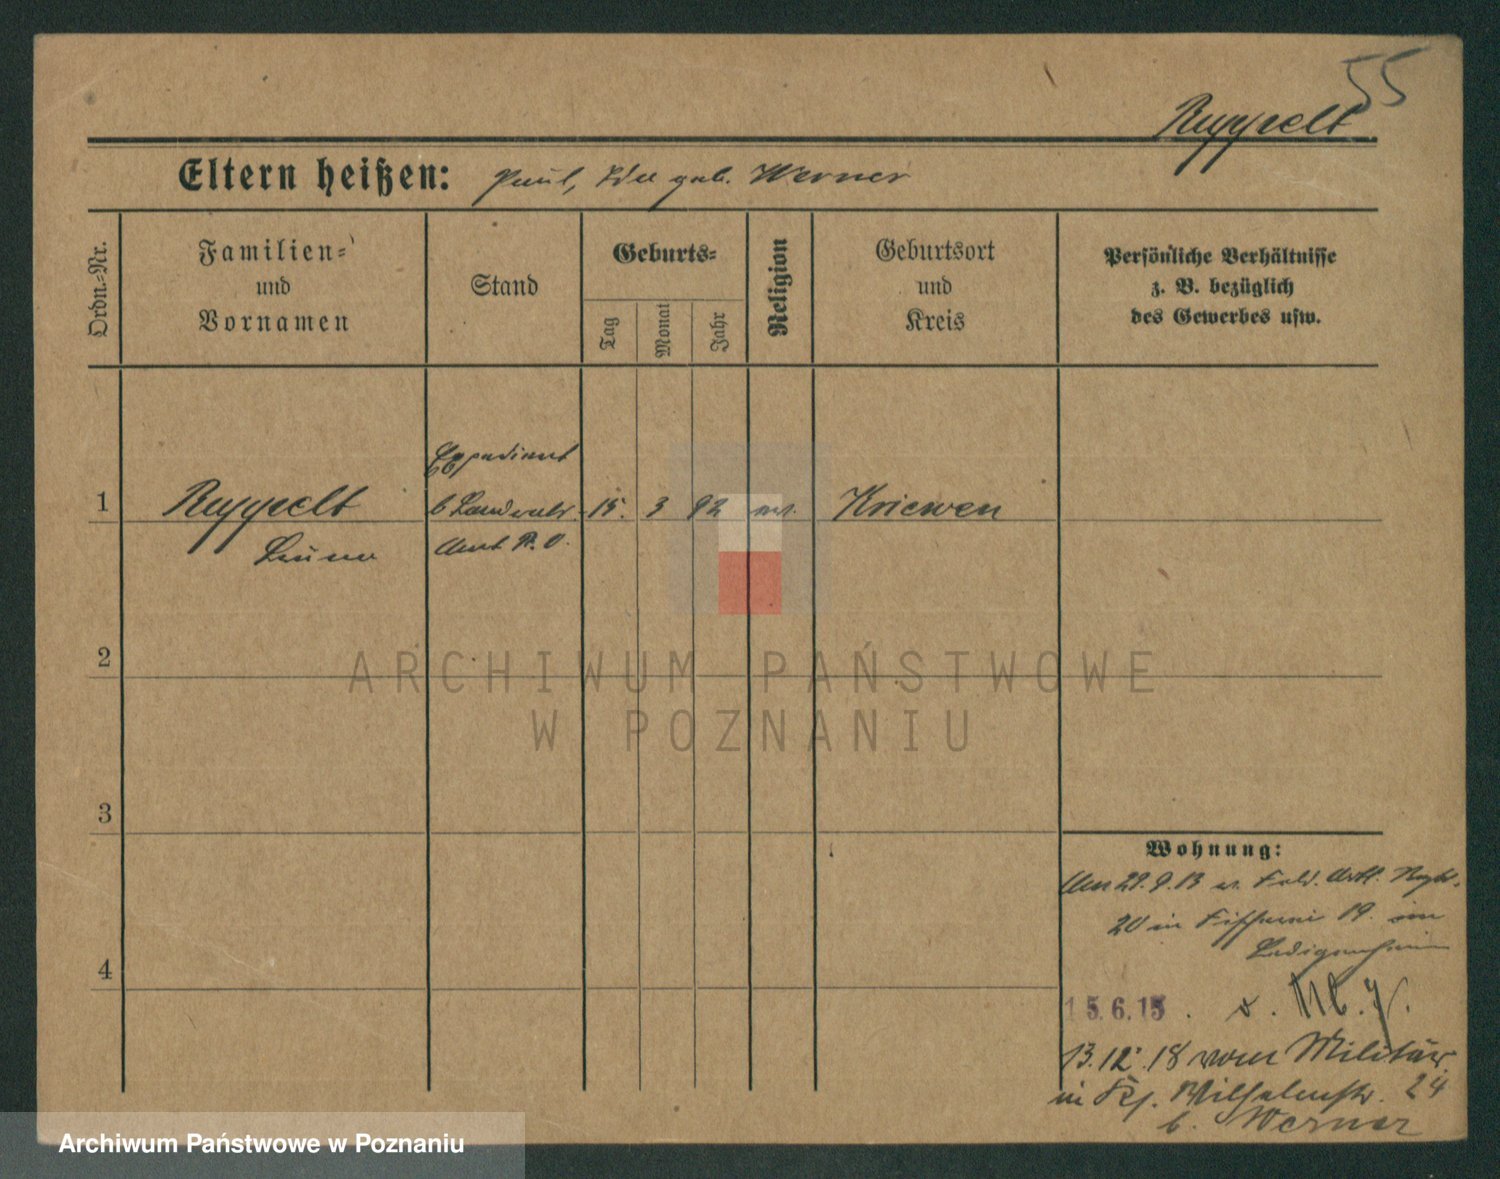 55
Ruppelt
Eltern heißen: Paul, Ida geb. Werner
Ordn.-Nr.
Familien-
und
Vornamen
Stand
Geburts-
Tag
Monat
Jahr
Religion
Geburtsort
und
Kreis
Persönliche Verhältnisse
z. B. bezüglich
des Gewerbes usw.
1
Ruppelt
Expedient
b Landratsamt
Amt P. O.
15. 3 92
Kriewen
2
3
4
Wohnung:
13 Feld. Artl. Regt.
20 in 19. im
Ledigenheim
15.6.15.
13.12.18 vom Militär
in Wilhelmstr. 24
b. Werner
ARCHIWUM PAŃSTWOWE
W POZNANIU
Archiwum Państwowe w Poznaniu